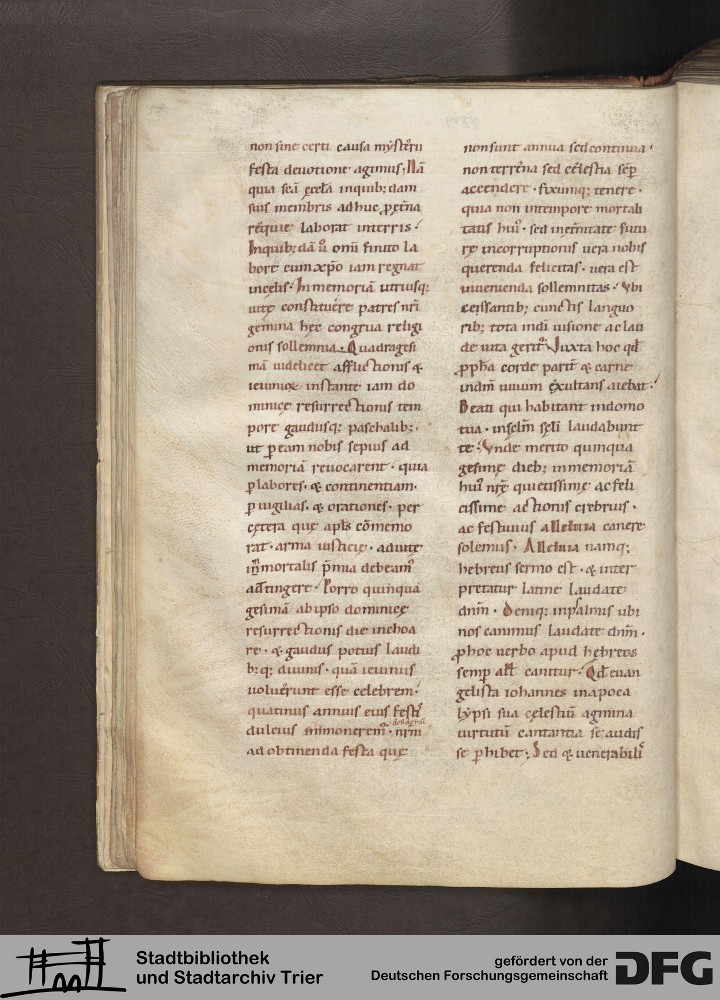 non sine certi causa mẏsterii
festa devotione agimus; Nā
quia scā ęcctā in quib; dam
suis membris adhuc ꝓ ęt̄na
rēquie laborat in terris.
In quib; dā u̾ om̄i finito la
bore cum xp̄o iam regnat
in celis. In memoriā utriusq;
uitę constituére patres nr̄i
gemina hęc congrua religi
onis sollemnia. Quadragesi
mā uidelicet afflictionis &
ieiuniox instante iam do
minicę resurrectionis tem
pore gaudiisq; paschalib;.
ut p eam nobis sepius ad
memoriā reuocarent. quia
p labores. & continentiam.
p uigilias. & orationes. per
cętera quę apl̄s cōmemo
rat. arma iusticię. ad uitę
inmortalis p̄mia debeam᷒
attingere. Porro quinqua
gesimā ab ipso dominicę
resurrectionis die inchoa
re. & gaudiis potius laudi
b:q; diuinis. quā ieiuniis
uoluérunt esse celebrem.
quatinus annuis eius festis
dulcius
ad obtinenda festa quę
non sunt annua sed continua.
non terréna sed cęlestia sēp
accendere. fixumq; tenere.
quia non in tempore mortali
tatis hui᷒. sed in et̄nitate futu
rę incorruptionis uera nobis
querenda felicitas. uera est
inuenienda sollemnitas. Vbi
cessantib; cunctis languo
rib; tota in dī uisione ac lau
de uita gerit᷑. Iuxta hoc qđ
ꝓph̄a corde parit᷑ & carne
in dm̄ uiuum éxultans aiebat.
Beati qui habitant in domo
tua. in sclm̄ scli laudabunt
te. Vnde merito quinqua
gesimę dieb; in memoriā
hui᷒ nrę quietissimę ac feli
cissimę actionis crebrius.
ac festiuius alleluia canere
solemus. Alleluia namq;
hebreus sermo est. & inter
pretatur latine laudate
dnm̄. Deniq; in psalmis ubi
nos canimus laudate dnm̄.
ꝓ hoc uerbo apud hębreos
semp all̄ canitur. Qđ euan
gelista iohannes in apoca
lẏpsi sua cęlestiū agmina
uirtutū cantantia se audis
se phibet; Sed & uenerabilis
Stadtbibliothek
und Stadtarchiv Trier
gefördert von der
Deutschen Forschungsgemeinschaft
DFG